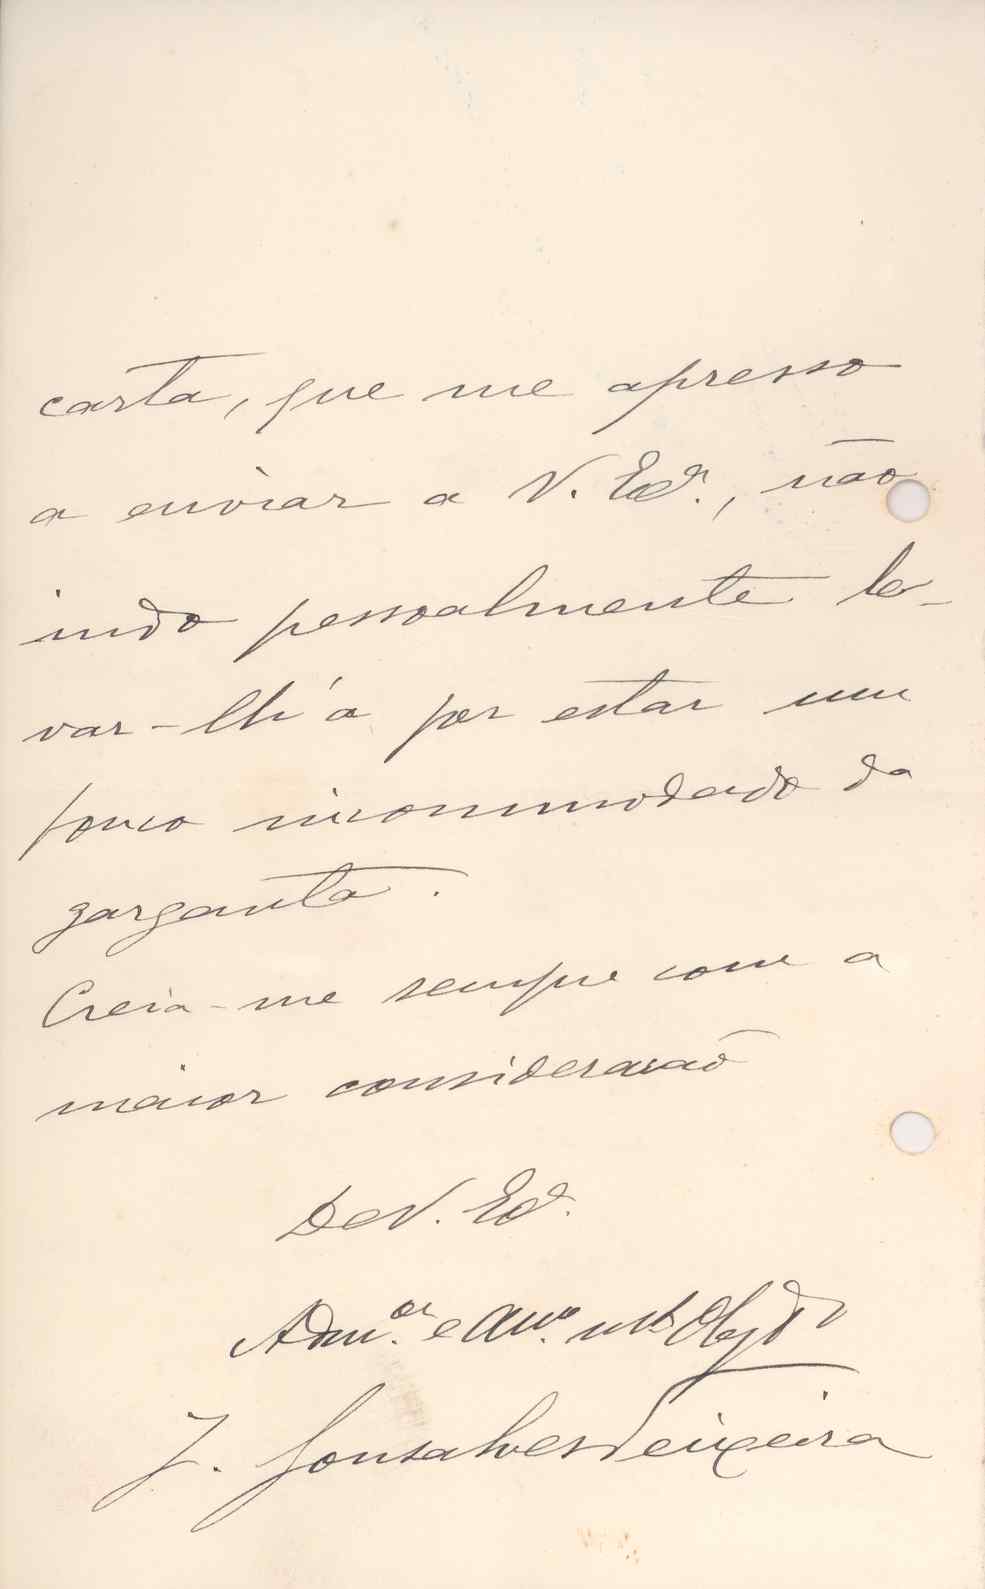 carta, que me apresso
a enviar a V. Exª., não
indo pessoalmente le-
var-lh'a por estar um
pouco incommodado da
garganta.
Creia-me sempre com a
maior consideração
De V. Exª.
Adm.or e Am.º mto Obgdo
J. Gonsalves Teixeira